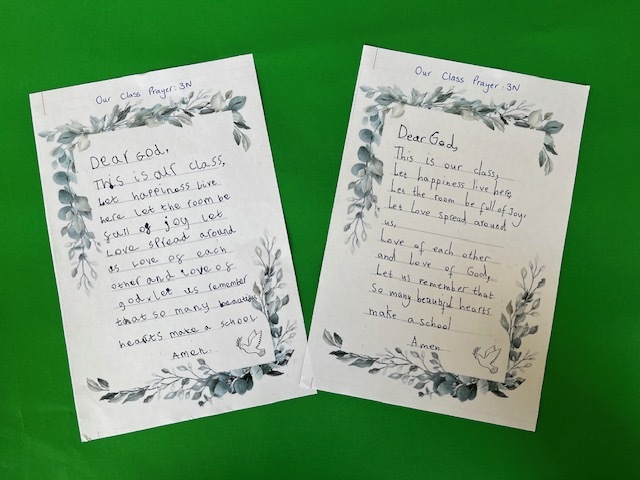 Our Class Prayer: 3N
Dear God,
This is our class,
Let happiness live
here Let the room be
full of joy Let
Love spread around
us Love of each
other and Love of
god. Let us remember
that so many beautiful
hearts make a school
Amen.
Our Class Prayer: 3N
Dear God,
This is our class,
Let happiness live here,
Let the room be full of Joy,
Let Love spread around
us,
Love of each other
and Love of God,
Let us remember that
so many beautiful hearts
make a school
Amen